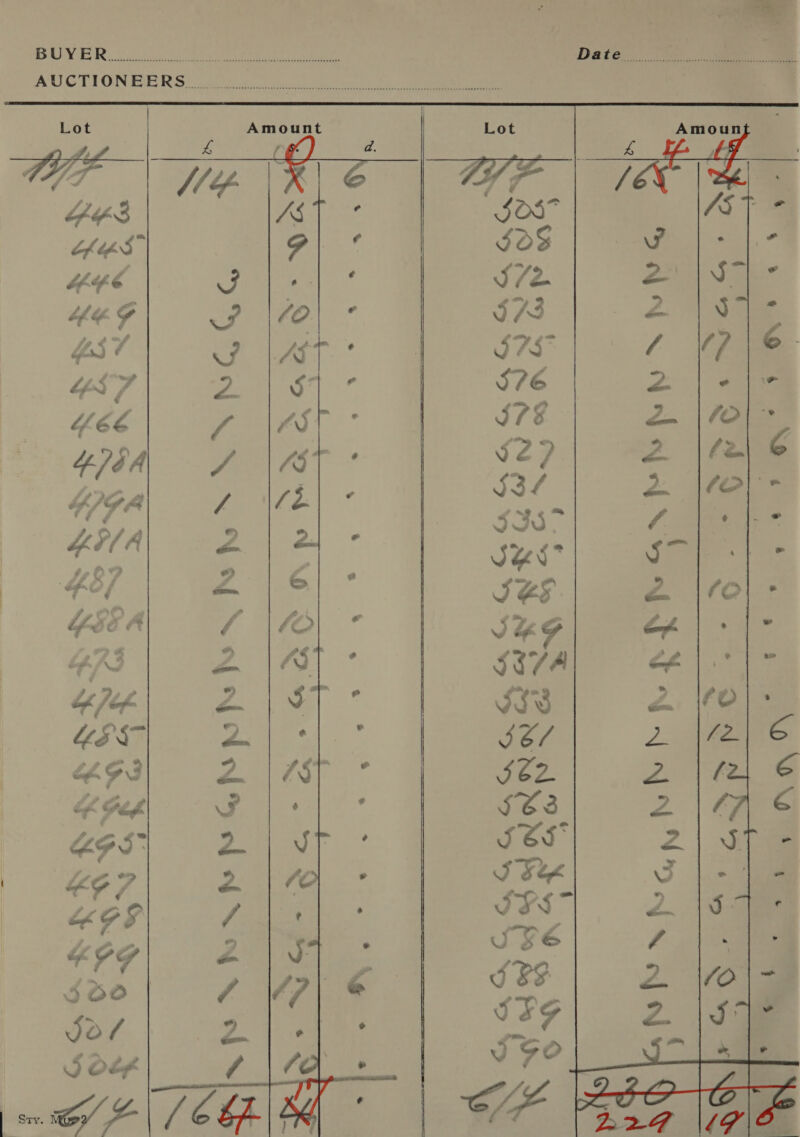 BUYER Date
AUCTIONEERS
Lot Amount Lot Amount
£ s. d. £ s.
B/F 114 6 B/F
443 15 - 505 15 -
445 9 - 508 3 - -
446 3 - - 512 2 5 -
449 3 10 - 513 2 5 -
451 3 15 - 515 1 17 6
457 2 5 - 516 2 - -
466 1 15 - 518 2 10 -
478A 1 15 - 527 2 12 6
479A 1 12 - 531 2 10 -
481A 2 2 - 535 1 - -
487 2 6 - 545 5 - -
488A 1 10 - 548 2 10 -
473 2 15 - 549 4 - -
474 2 5 - 551A 4 - -
485 2 - - 553 2 10 -
493 2 15 - 561 2 12 6
494 3 - - 562 2 12 6
495 2 5 - 563 2 17 6
497 2 10 - 565 2 5 -
498 1 - - 584 3 - -
499 2 5 - 585 2 5 -
500 1 17 6 586 1 - -
501 2 - - 588 2 10 -
504 1 10 - 589 2 5 -
590 5 - -
C/F C/F 230 6 6
Sty. 229 19 6